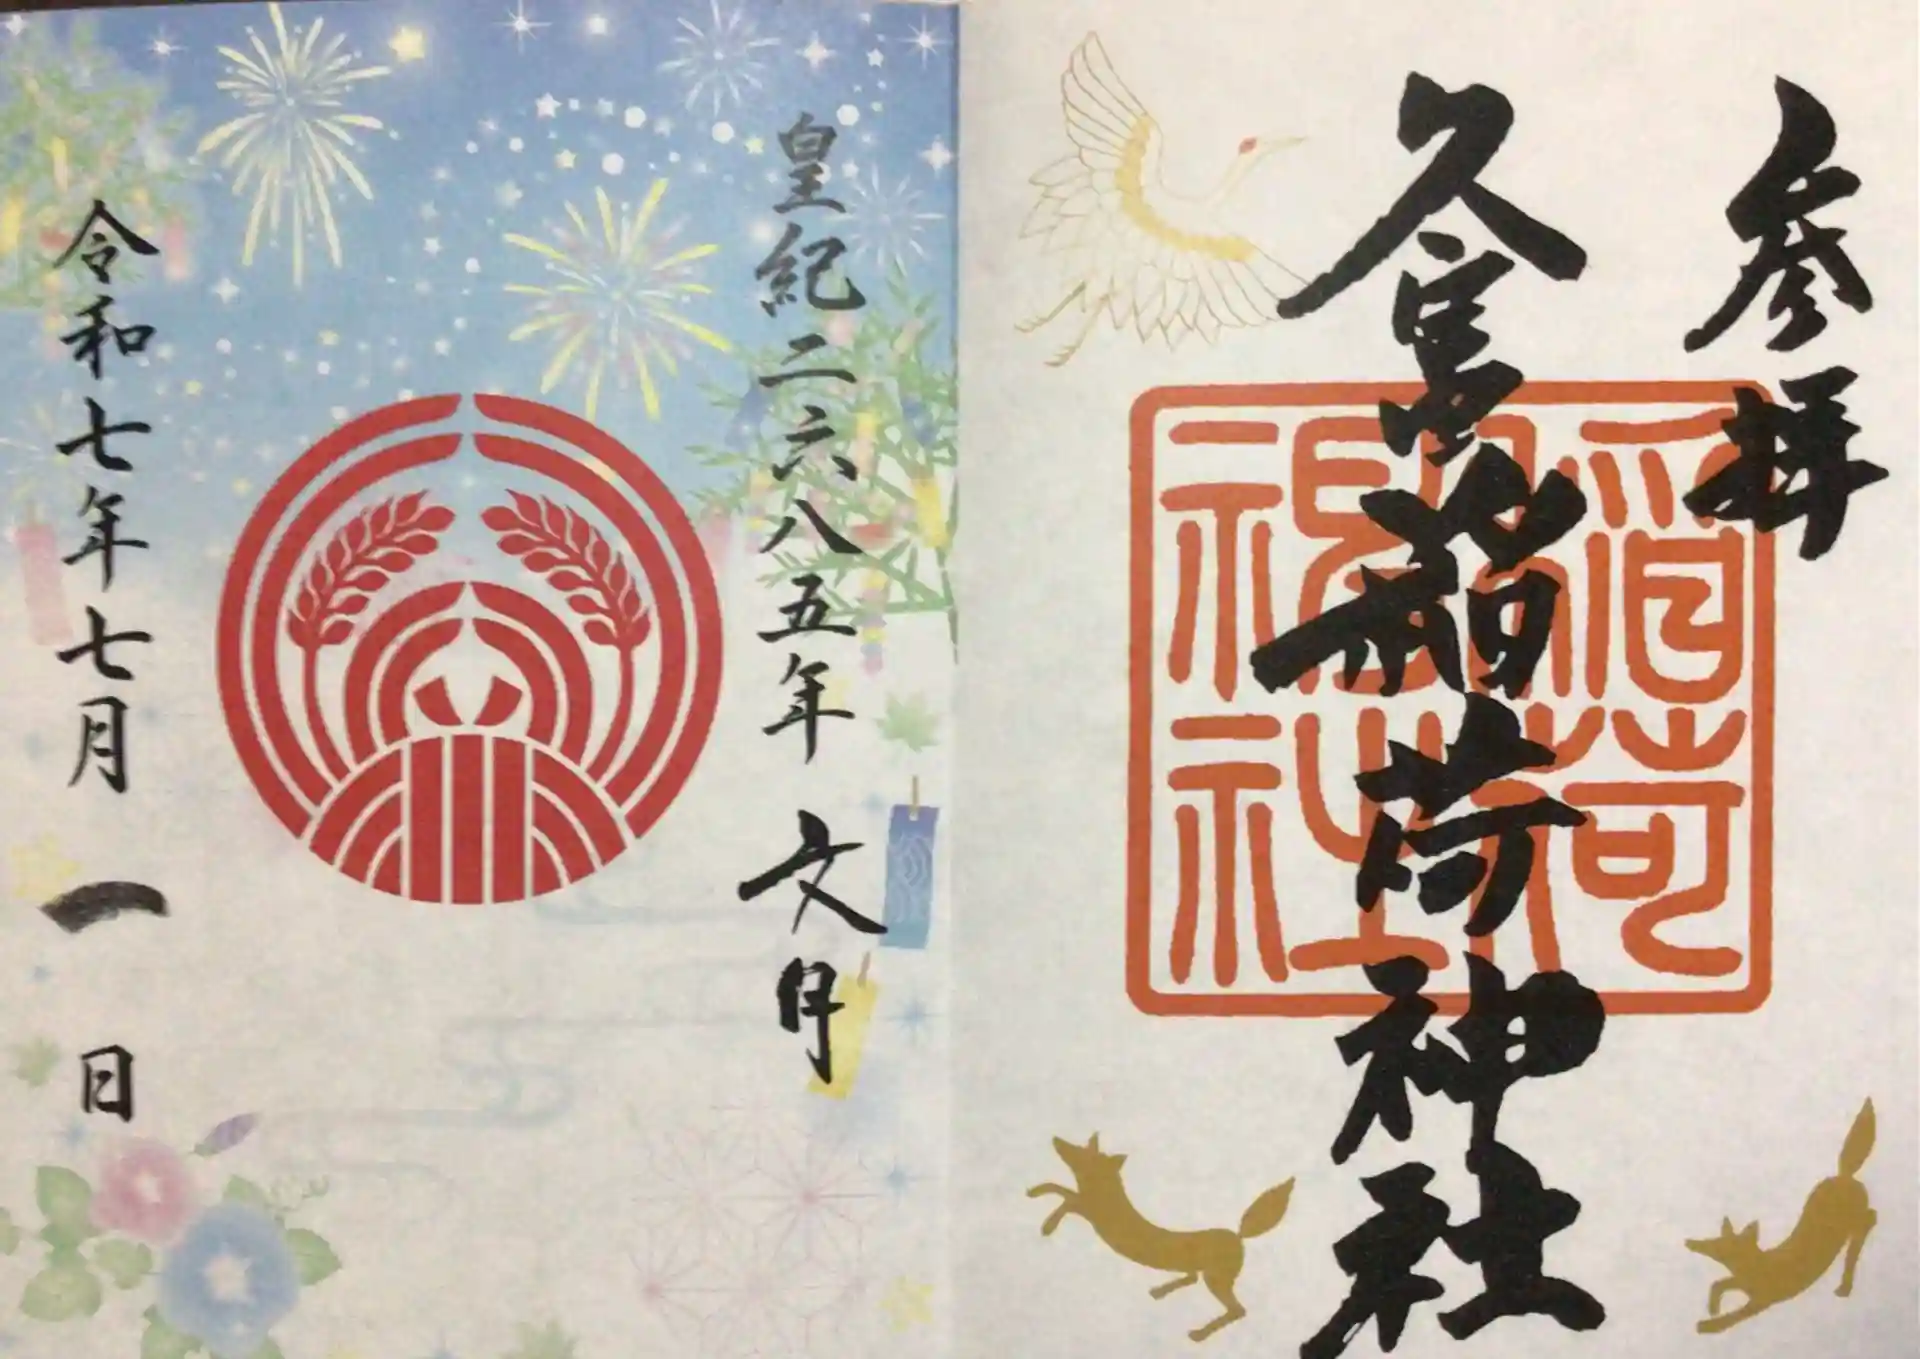 参拝
久富稲荷神社
稲荷
神社
皇紀二六八五年 文月
令和七年七月 一日